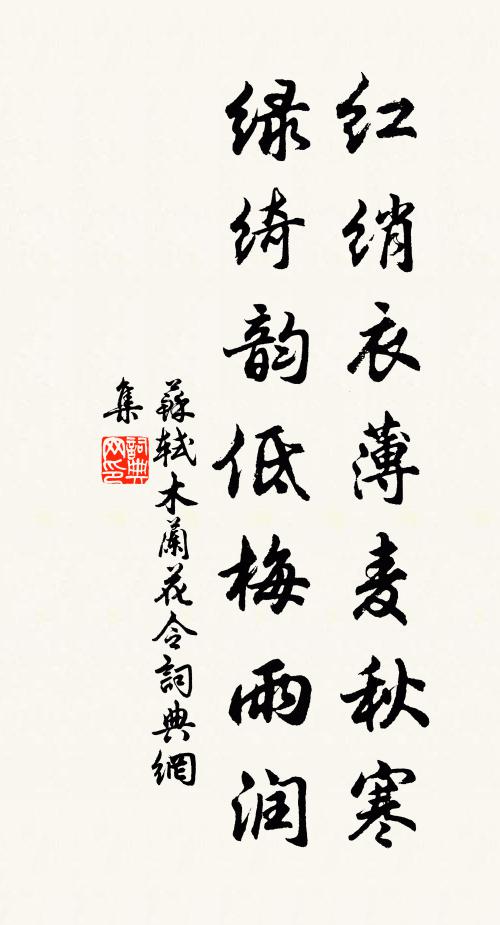 红绡衣薄麦秋寒
绿绮韵低梅雨润
蘇轼木蘭花令詞典網
集
詞典
网印